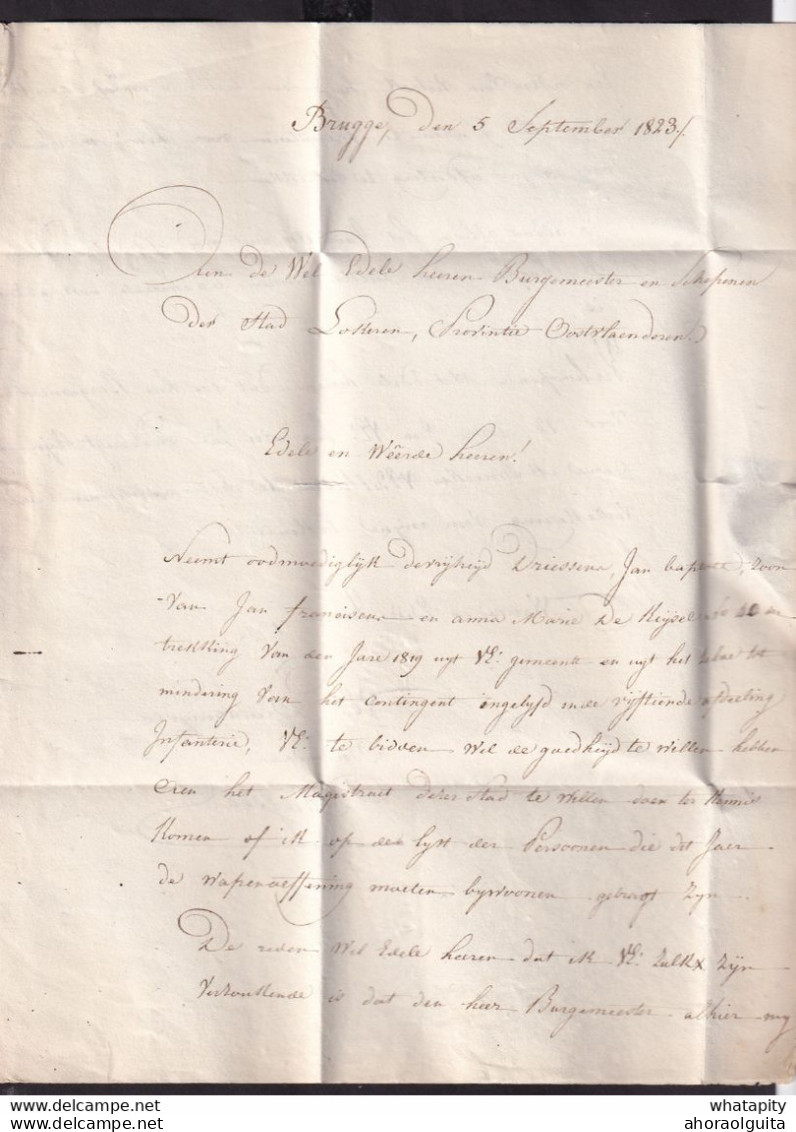 Brugge, den 5 September 1823./.
Aen de Wel Edele heeren Burgemeester en Schepenen
der Stad Lokeren, Provintie Oostvlaenderen.
Edele en Weêrde heeren!
Neemt oodmoediglijk de vrijheyd Driessens, Jan baptiste, zoon
Van Jan franciscus en anna Marie De Keyser N° en
trekking Van den Jare 1819 uyt UE: gemeente en uyt het tot
mindering Van het Contingent ingelyfd in de vyftiende afdeeling
Infanterie, UE: te bidden Wel de goedheyd te willen hebben
Een het Magistraet dezer Stad te willen doen ter Kennis
Komen of ik op de lyst der Persoonen die dit Jaer
de Wapenoeffening moeten bywoonen gebragt zyn
De reden Wel Edele heeren dat ik UE: zulkx zyn
Verzoekende is dat den heer Burgemeester alhier my
whatapity
ahoraolguita
www.delcampe.net